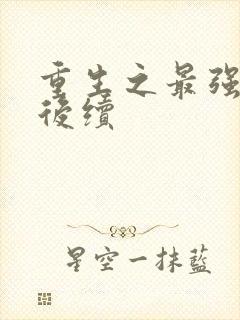 重生之最强
後續
星空一抹藍